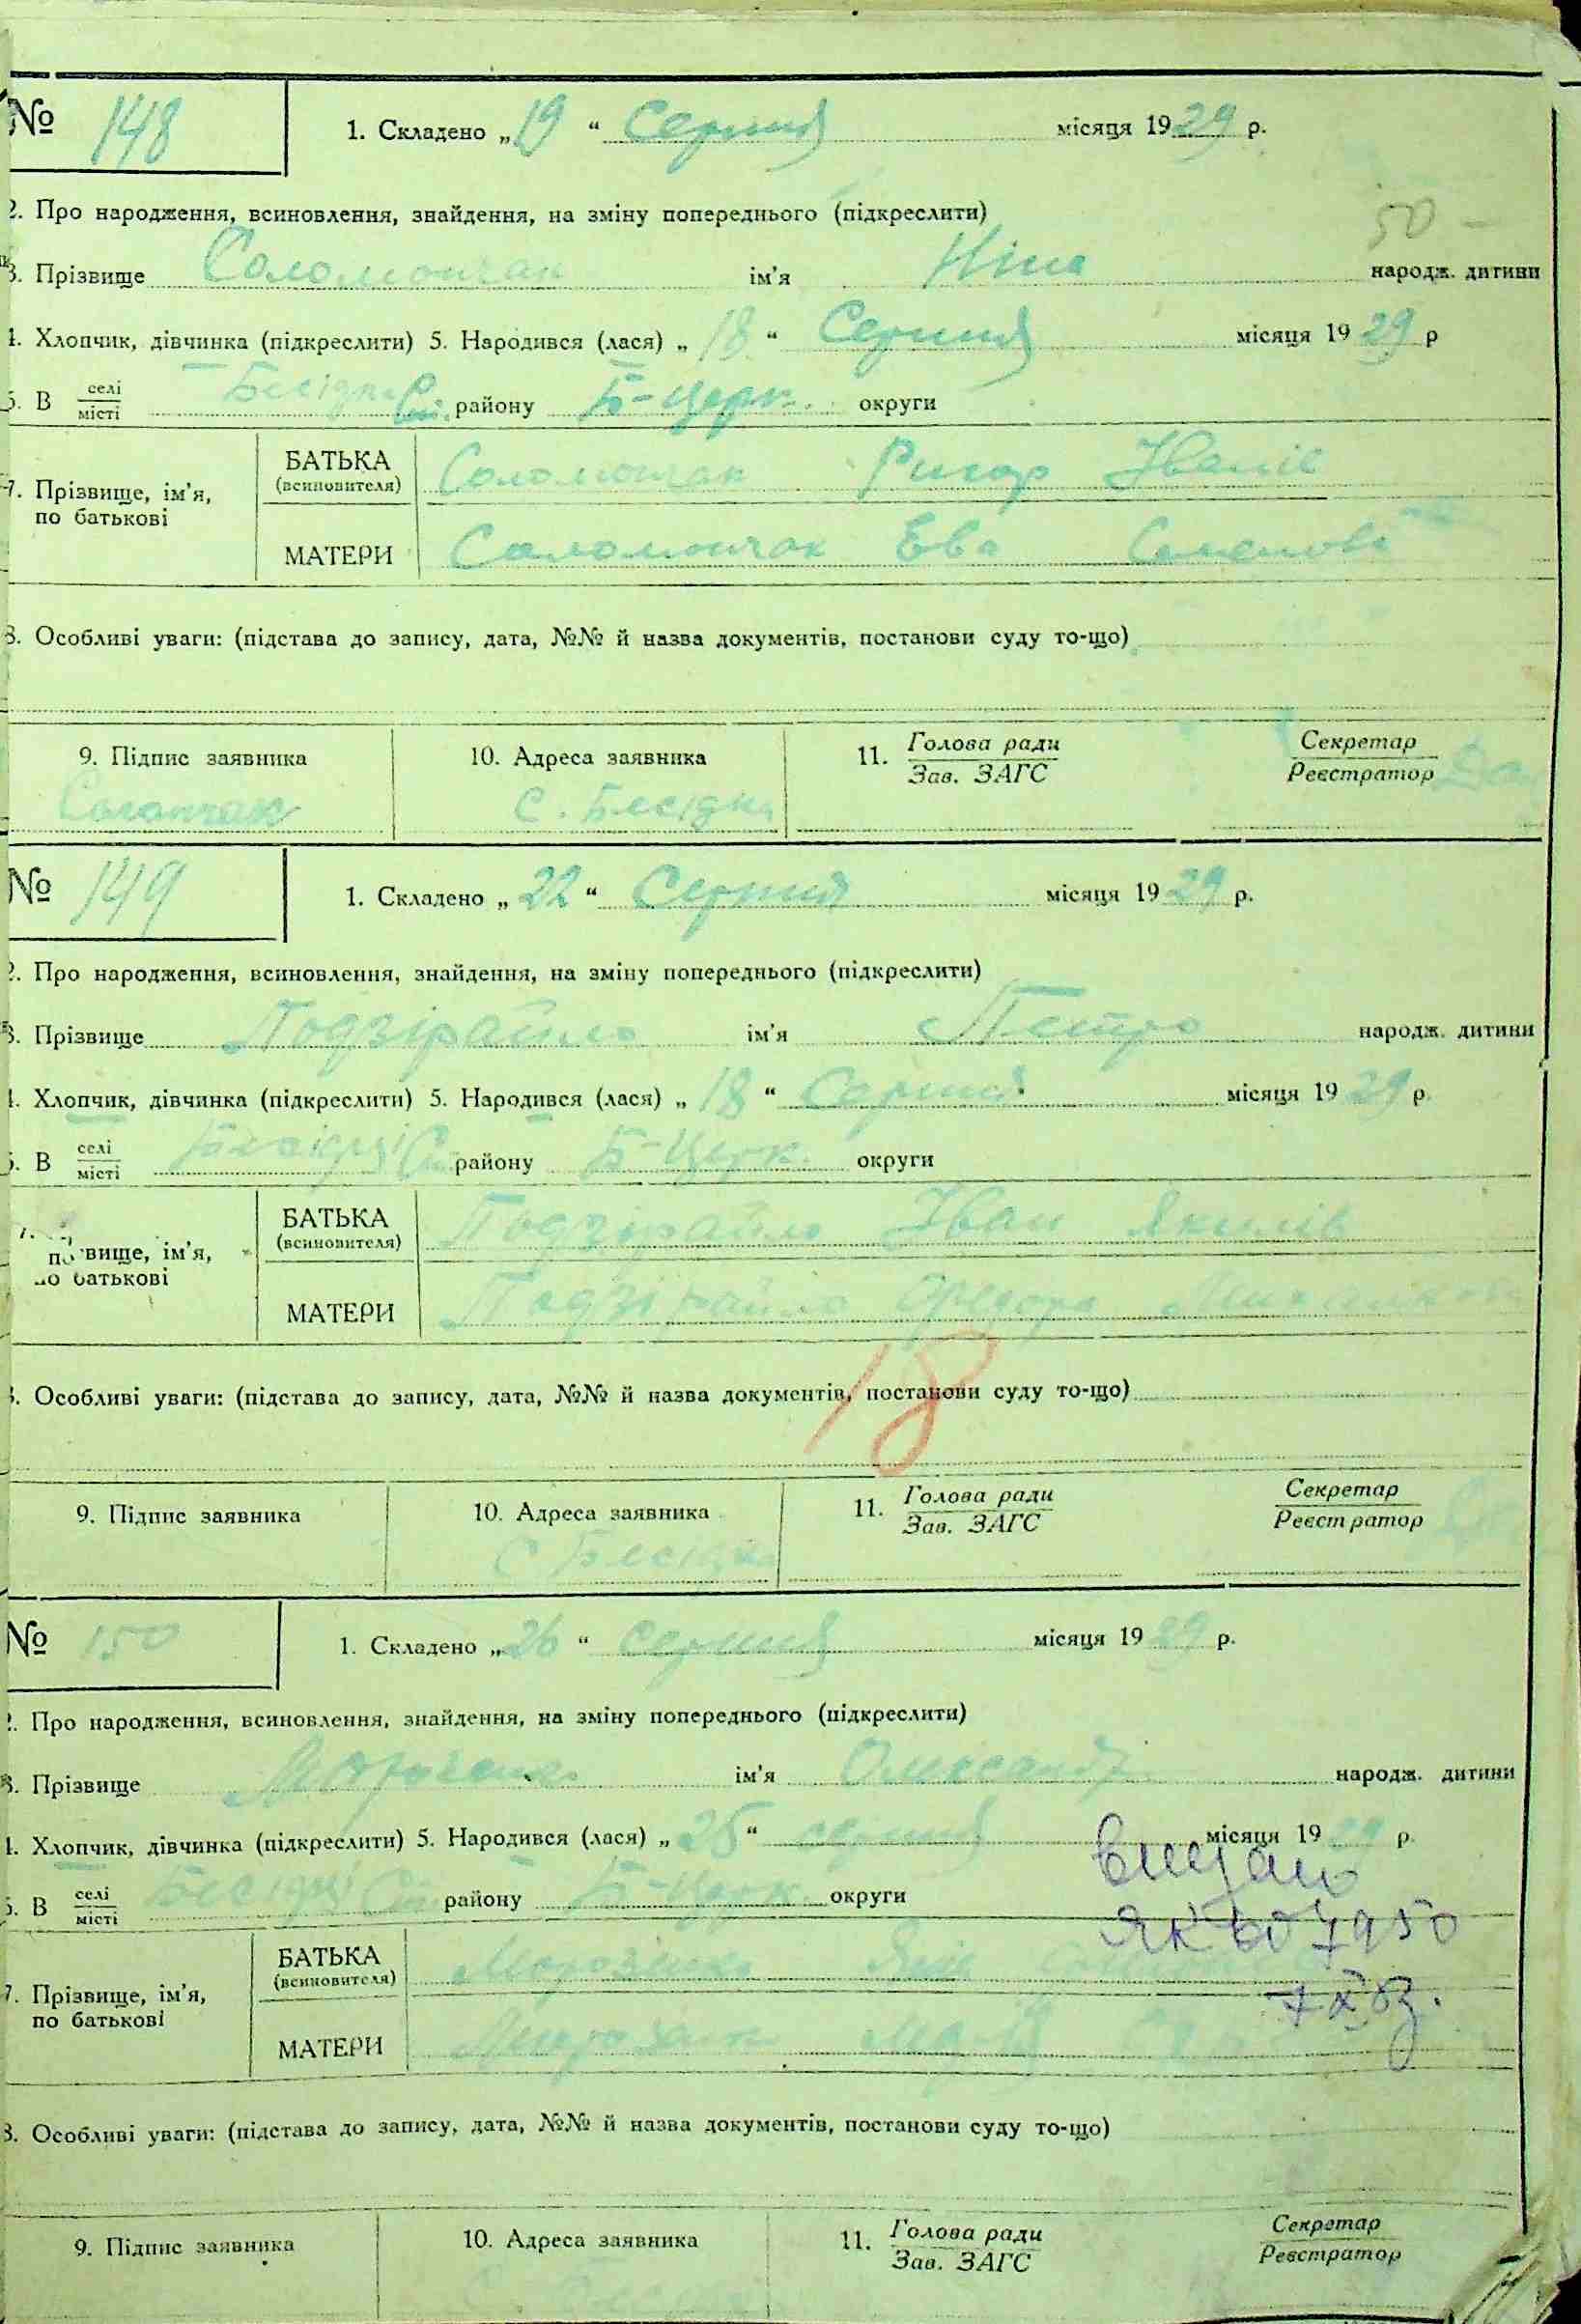 № 148 1. Складено „19“ Серпня місяця 1929 р.
2. Про народження, всиновлення, знайдення, на зміну попереднього (підкреслити)
50 –
3. Прізвище Соломончак ім'я Ніна народж. дитини
4. Хлопчик, дівчинка (підкреслити) 5. Народився (лася) „18“ Серпня місяця 1929 р
6. В селі/місті району Б-Церк. округи
7. Прізвище, ім'я, по батькові
БАТЬКА (всиновителя) Соломончак Ригор Іванів
МАТЕРИ Соломончак Ева Семенова
8. Особливі уваги: (підстава до запису, дата, №№ й назва документів, постанови суду то-що)
9. Підпис заявника 10. Адреса заявника 11. Голова ради/Зав. ЗАГС Секретар/Реєстратор
С. Бесідка
№ 149 1. Складено „22“ Серпня місяця 1929 р.
2. Про народження, всиновлення, знайдення, на зміну попереднього (підкреслити)
3. Прізвище Подзірайло ім'я Петро народж. дитини
4. Хлопчик, дівчинка (підкреслити) 5. Народився (лася) „18“ Серпня місяця 1929 р.
6. В селі/місті району Б-Церк. округи
вище, ім'я, по батькові
БАТЬКА (всиновителя) Подзірайло Іван Якимів
МАТЕРИ Подзірайло
18
Особливі уваги: (підстава до запису, дата, №№ й назва документів, постанови суду то-що)
9. Підпис заявника 10. Адреса заявника 11. Голова ради/Зав. ЗАГС Секретар/Реєстратор
С Бесідка
№ 150 1. Складено „26“ серпня місяця 1929 р.
2. Про народження, всиновлення, знайдення, на зміну попереднього (підкреслити)
3. Прізвище ім'я Олександр народж. дитини
4. Хлопчик, дівчинка (підкреслити) 5. Народився (лася) „25“ серпня місяця 1929 р.
6. В селі/місті Бесідці району Б-Церк. округи
7. Прізвище, ім'я, по батькові
БАТЬКА (всиновителя)
МАТЕРИ
8. Особливі уваги: (підстава до запису, дата, №№ й назва документів, постанови суду то-що)
9. Підпис заявника 10. Адреса заявника 11. Голова ради/Зав. ЗАГС Секретар/Реєстратор